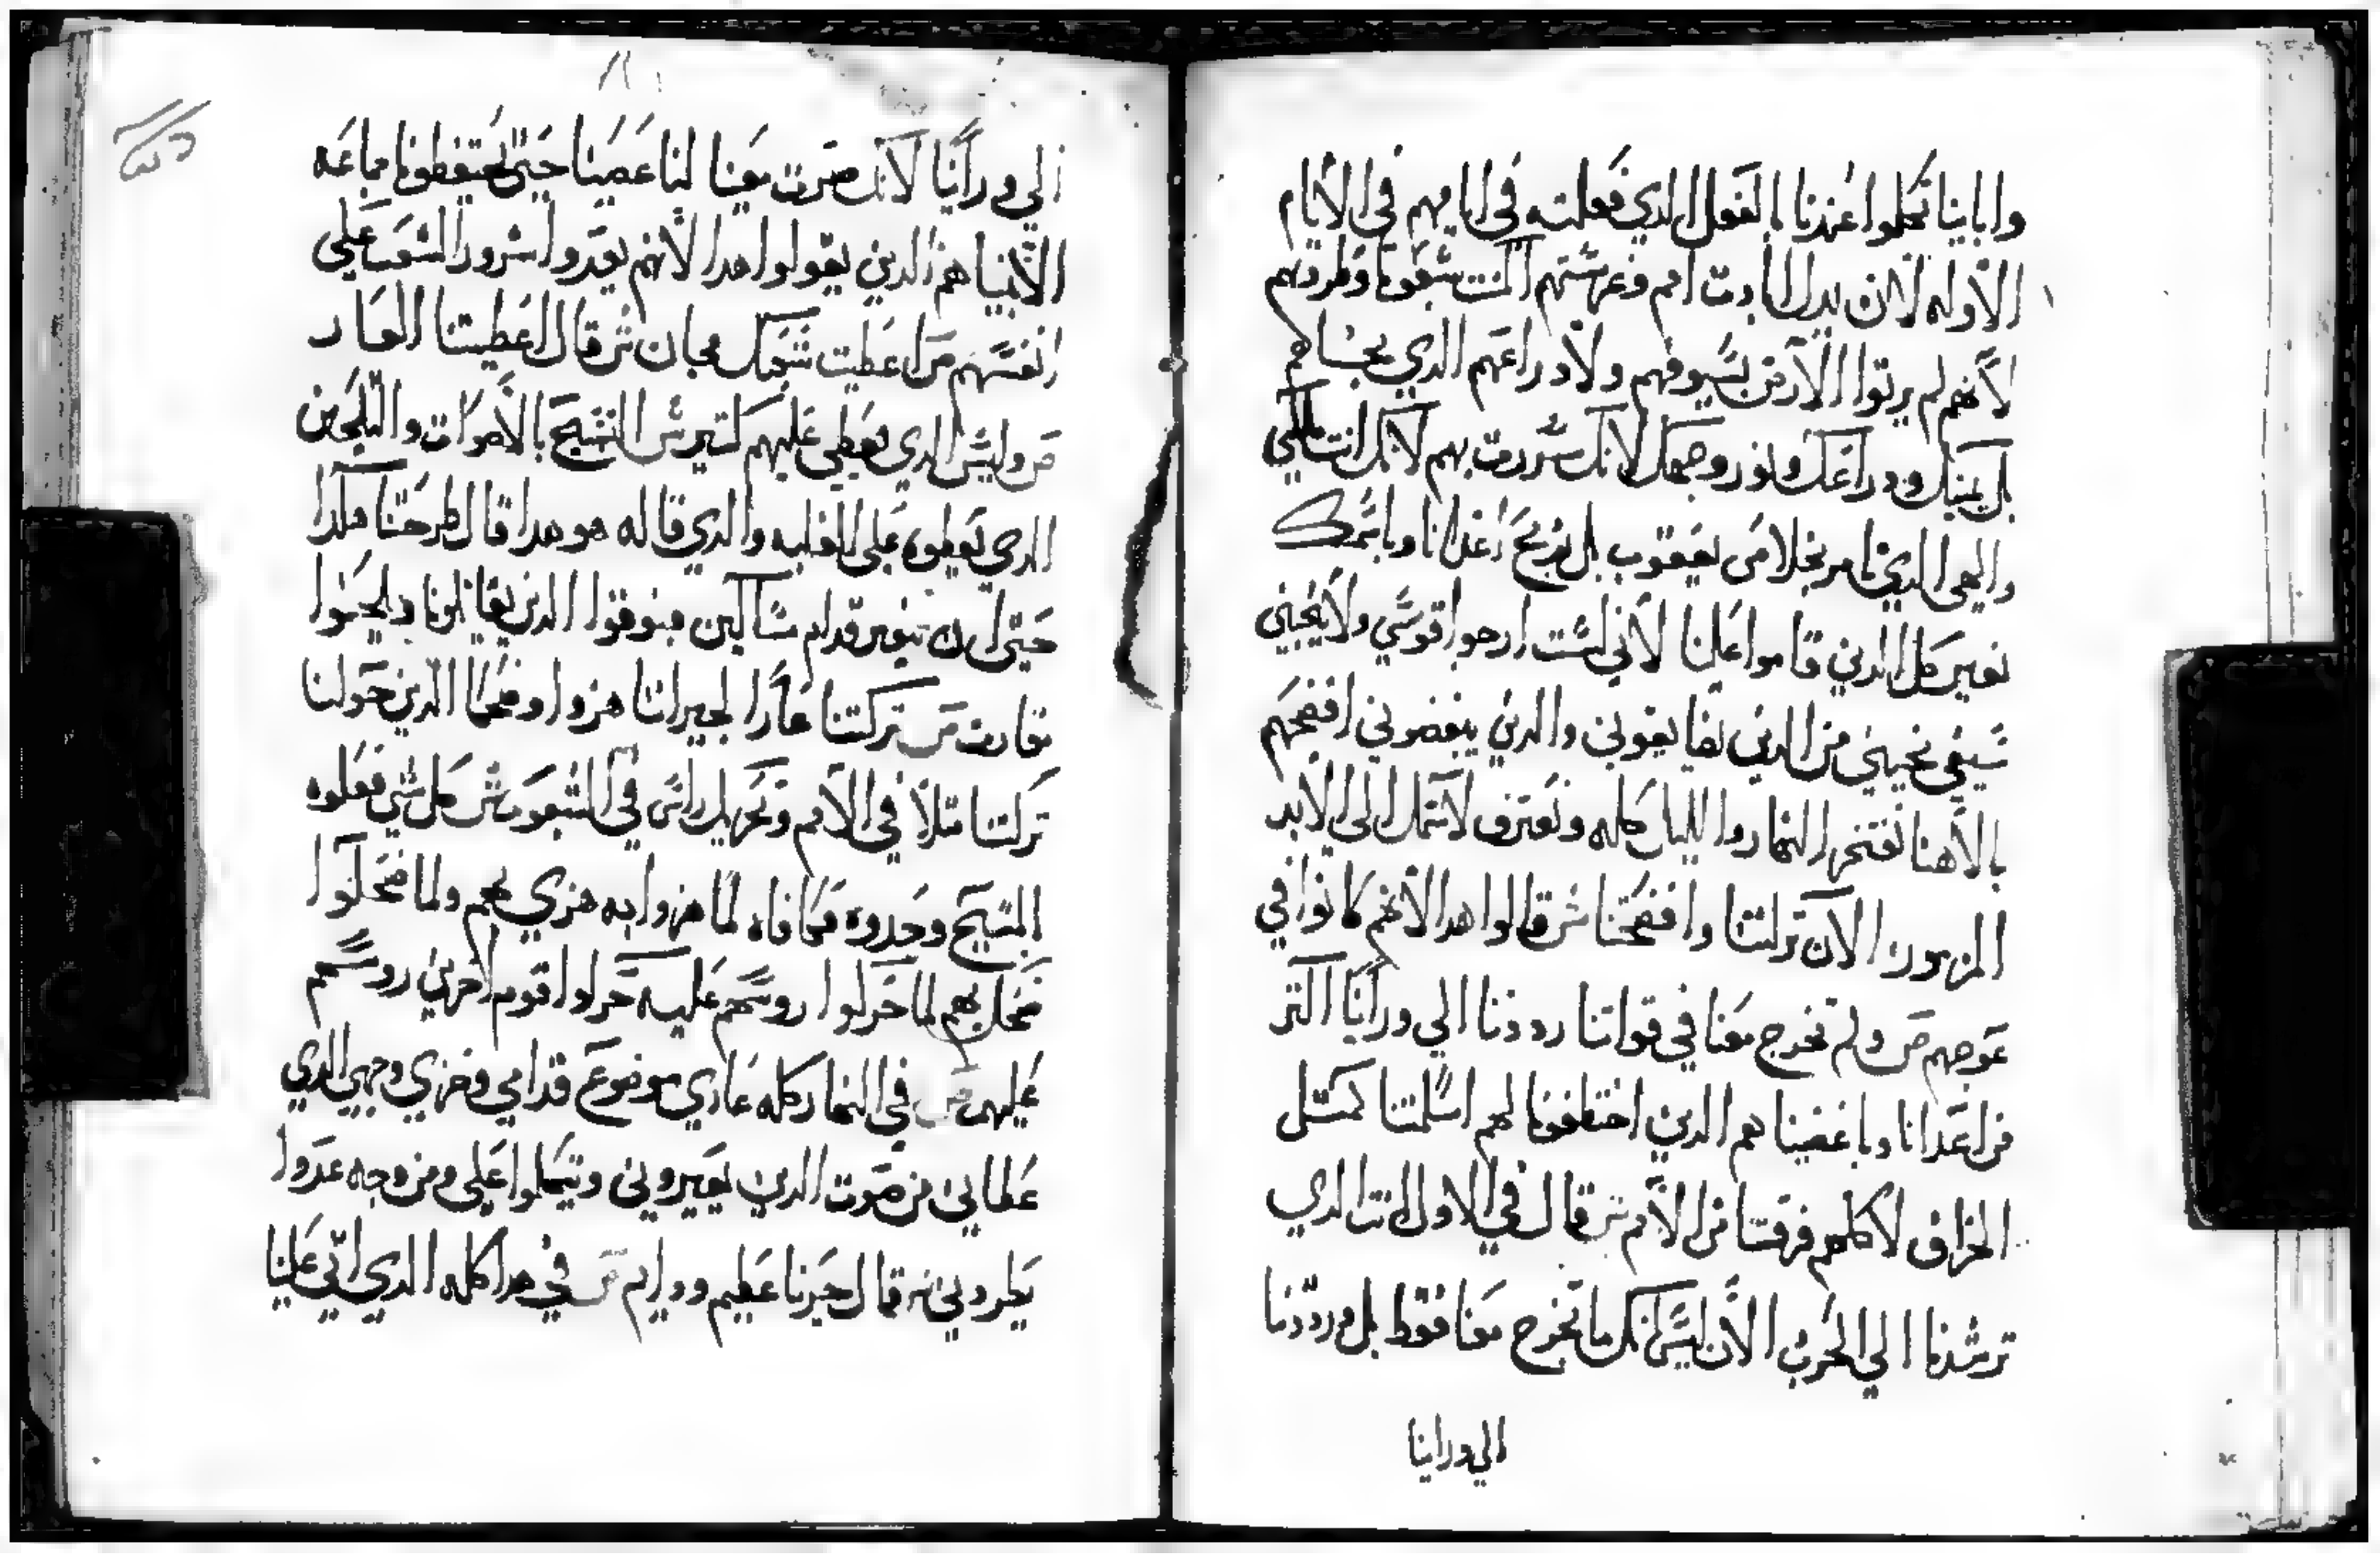 واباينا تكلموا عندنا بالفعل الدي فعلته في ايامهم في الايام
الاوله لان يدك ابادت امم وغرستهم اكنت شعوبا وطردتهم
لانهم لم يرتوا الارض بسيوفهم ولا دراعهم الدي نجاهم
بل يمينك ودراعك ونور وجهك لانك سررت بهم لانك انت ملكي
والهي الدي تامر بخلاص يعقوب بك نزيح اعدانا وباسمك
نعير كل الدين قاموا علينا لاني لست ارجوا قوسي ولا يحيني
سيفي نجيتني من الدين يضايقوني والدين يبغضوني افضحهم
بالاهنا نفتخر النهار والليل كله ونعترف لاسمك الى الابد
المزمور الان تركتنا وافضحتنا ش قالوا هدا لانهم كانوا في
عوجهم ص ولم تخرج معنا في قواتنا رددتنا الي وراينا اكتر
من اعدانا وباغضينا هم الدين اختطفونا لهم اسلمتنا كمتل
الخراف لاكلهم فرقتنا في الامم ش قال في الاول انت الدي
ترشدنا الي الحرب الان ليس انك ما تخرج معنا فقط بل ورددتنا
الي وراينا
الي وراينا لانك صرت معنا لنا عصينا حتى يختطفونا جماعه
الانبيا هم الدين يقولوا هدا لانهم يعدوا شرور الشعب على
انفسهم ص اعطيت شعبك مجان ش قال اعطيتنا العار
ص وليس الدي يعطي عليهم كتير ش التسبيح بالاصوات والتلحين
الدي يعطوه على الغلبه والدي قاله هو هدا قال طرحتنا هكدا
حتى ان نصير قدام ساكتين فبوقوا الدين يقاتلونا ويلحنوا
بقارت ص تركتنا عارا لجيراننا هزوا وضحكا الدين حولنا
تركتنا متلا في الامم وتحريك راس في الشعوب ش كل شي فعلوه
المسيح وجدوه مكافاه لما هزوا به هزي بهم ولما ضحكوا
ضحك بهم لما حركوا روسهم عليه حركوا قوم اخرين روسهم
عليهم ص في النهار كله عاري موضوع قدامي وخزي وجهي الدي
غطاني من صوت الدين يعيروني ويتكلموا علي ومن وجه عدوا
يطردني ش قال حزنا عظيم ودايم ص في هدا كله الدي اتى علينا